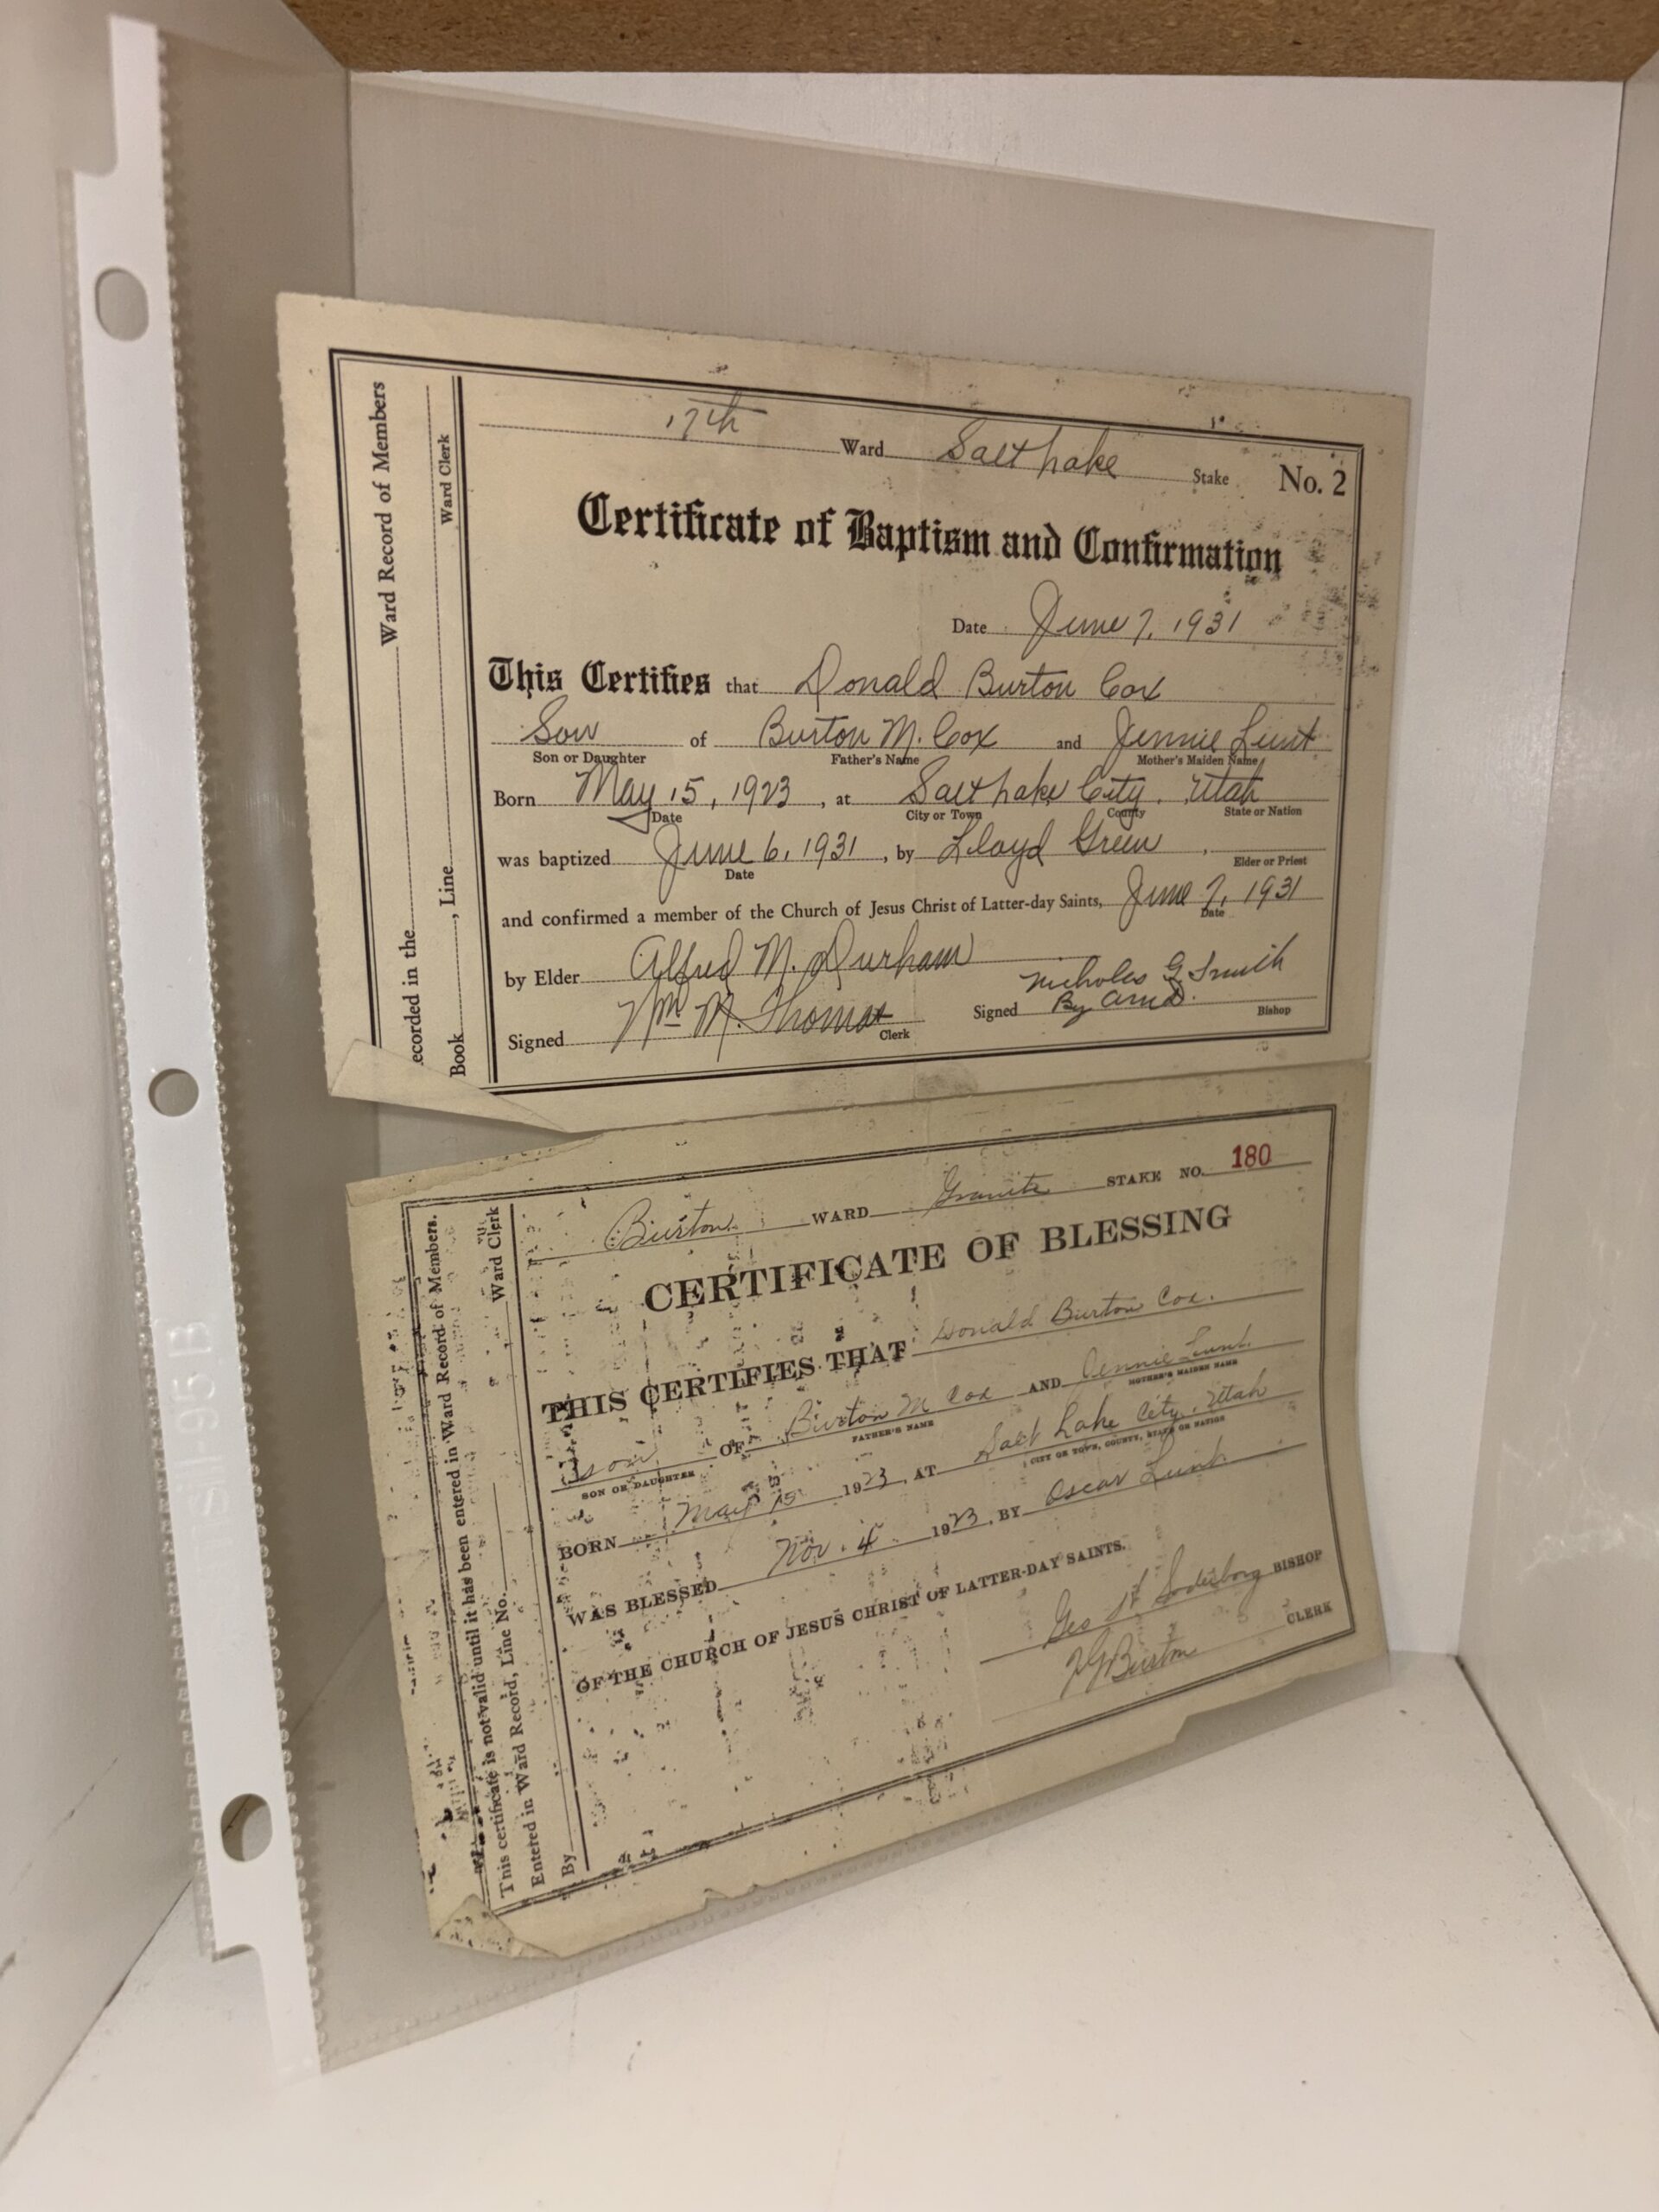 17th Ward Salt Lake Stake No. 2
Certificate of Baptism and Confirmation
Date June 7, 1931
This Certifies that Donald Burton Cox
Son of Burton M. Cox and Jennie Lunt
Son or Daughter Father's Name Mother's Maiden Name
Born May 15, 1923, at Salt Lake City, Utah
Date City or Town County State or Nation
was baptized June 6, 1931, by Lloyd Green
Date Elder or Priest
and confirmed a member of the Church of Jesus Christ of Latter-day Saints, June 7, 1931
Date
by Elder Alfred M. Durham
Signed Wm M. Thomas Signed Nicholas G. Smith
By
Clerk Bishop
ecorded in the Ward Record of Members
Book , Line Ward Clerk
Burton WARD Granite STAKE NO. 180
CERTIFICATE OF BLESSING
THIS CERTIFIES THAT Donald Burton Cox.
son OF Burton M Cox AND Jennie Lunt.
SON OR DAUGHTER FATHER'S NAME MOTHER'S MAIDEN NAME
BORN May 15 1923, AT Salt Lake City, Utah
CITY OR TOWN, COUNTY, STATE OR NATION
WAS BLESSED Nov. 4 1923, BY Oscar Lunt
OF THE CHURCH OF JESUS CHRIST OF LATTER-DAY SAINTS.
Geo Soderborg BISHOP
Burton CLERK
This certificate is not valid until it has been entered in Ward Record of Members.
Entered in Ward Record, Line No. Ward Clerk
By